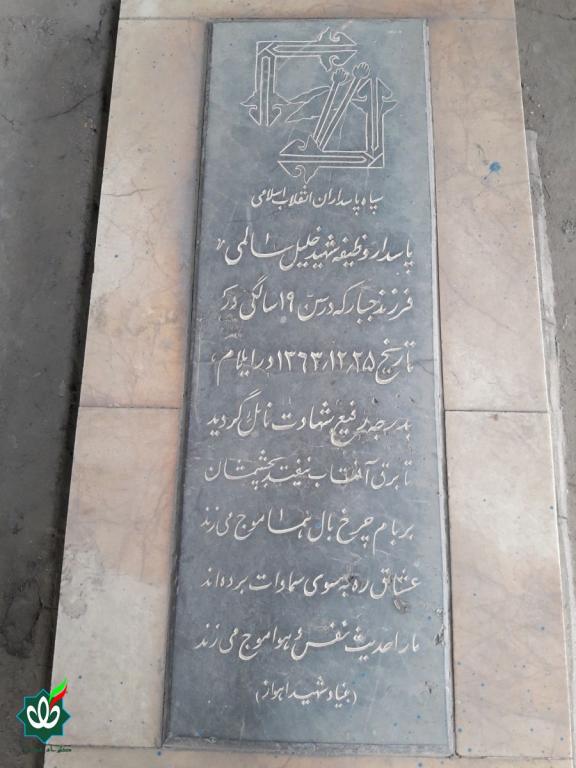 سپاه پاسداران انقلاب اسلامی
پاسدار وظیفه شهید خلیل سالمی
فرزند جبار که در سن ۱۹ سالگی در
تاریخ ۱۳۶۳٫۱۲٫۲۵ در ایلام
بدرجه رفیع شهادت نائل گردید
تا برق آفتاب نیفتد بچشمتان
بر بام چرخ بال هما موج می زند
عشاق ره به سوی سماوات برده اند
ما را حدیث نفس و هوا موج می زند
(بنیاد شهید اهواز)